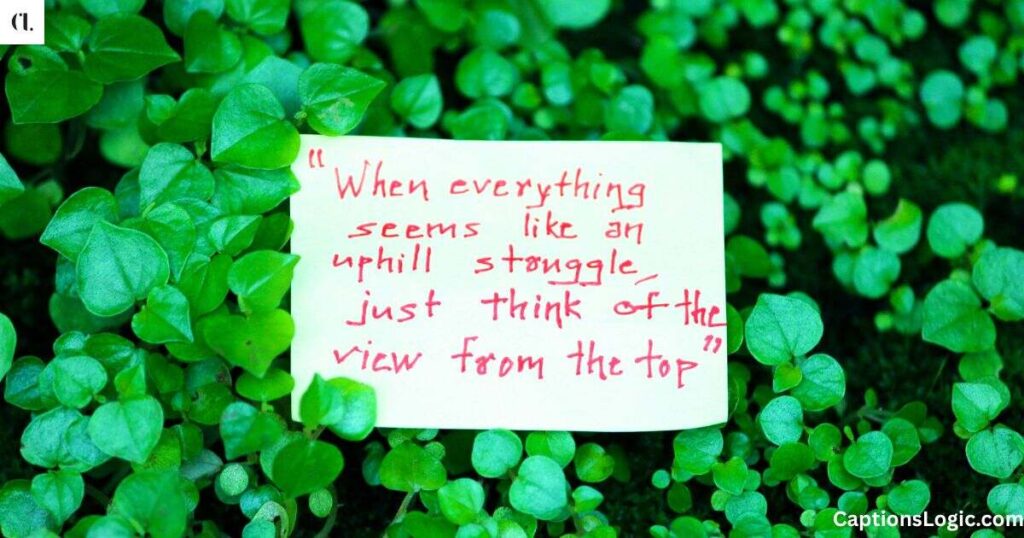 CL
"When everything
seems like an
uphill struggle,
just think of the
view from the top"
CaptionsLogic.com